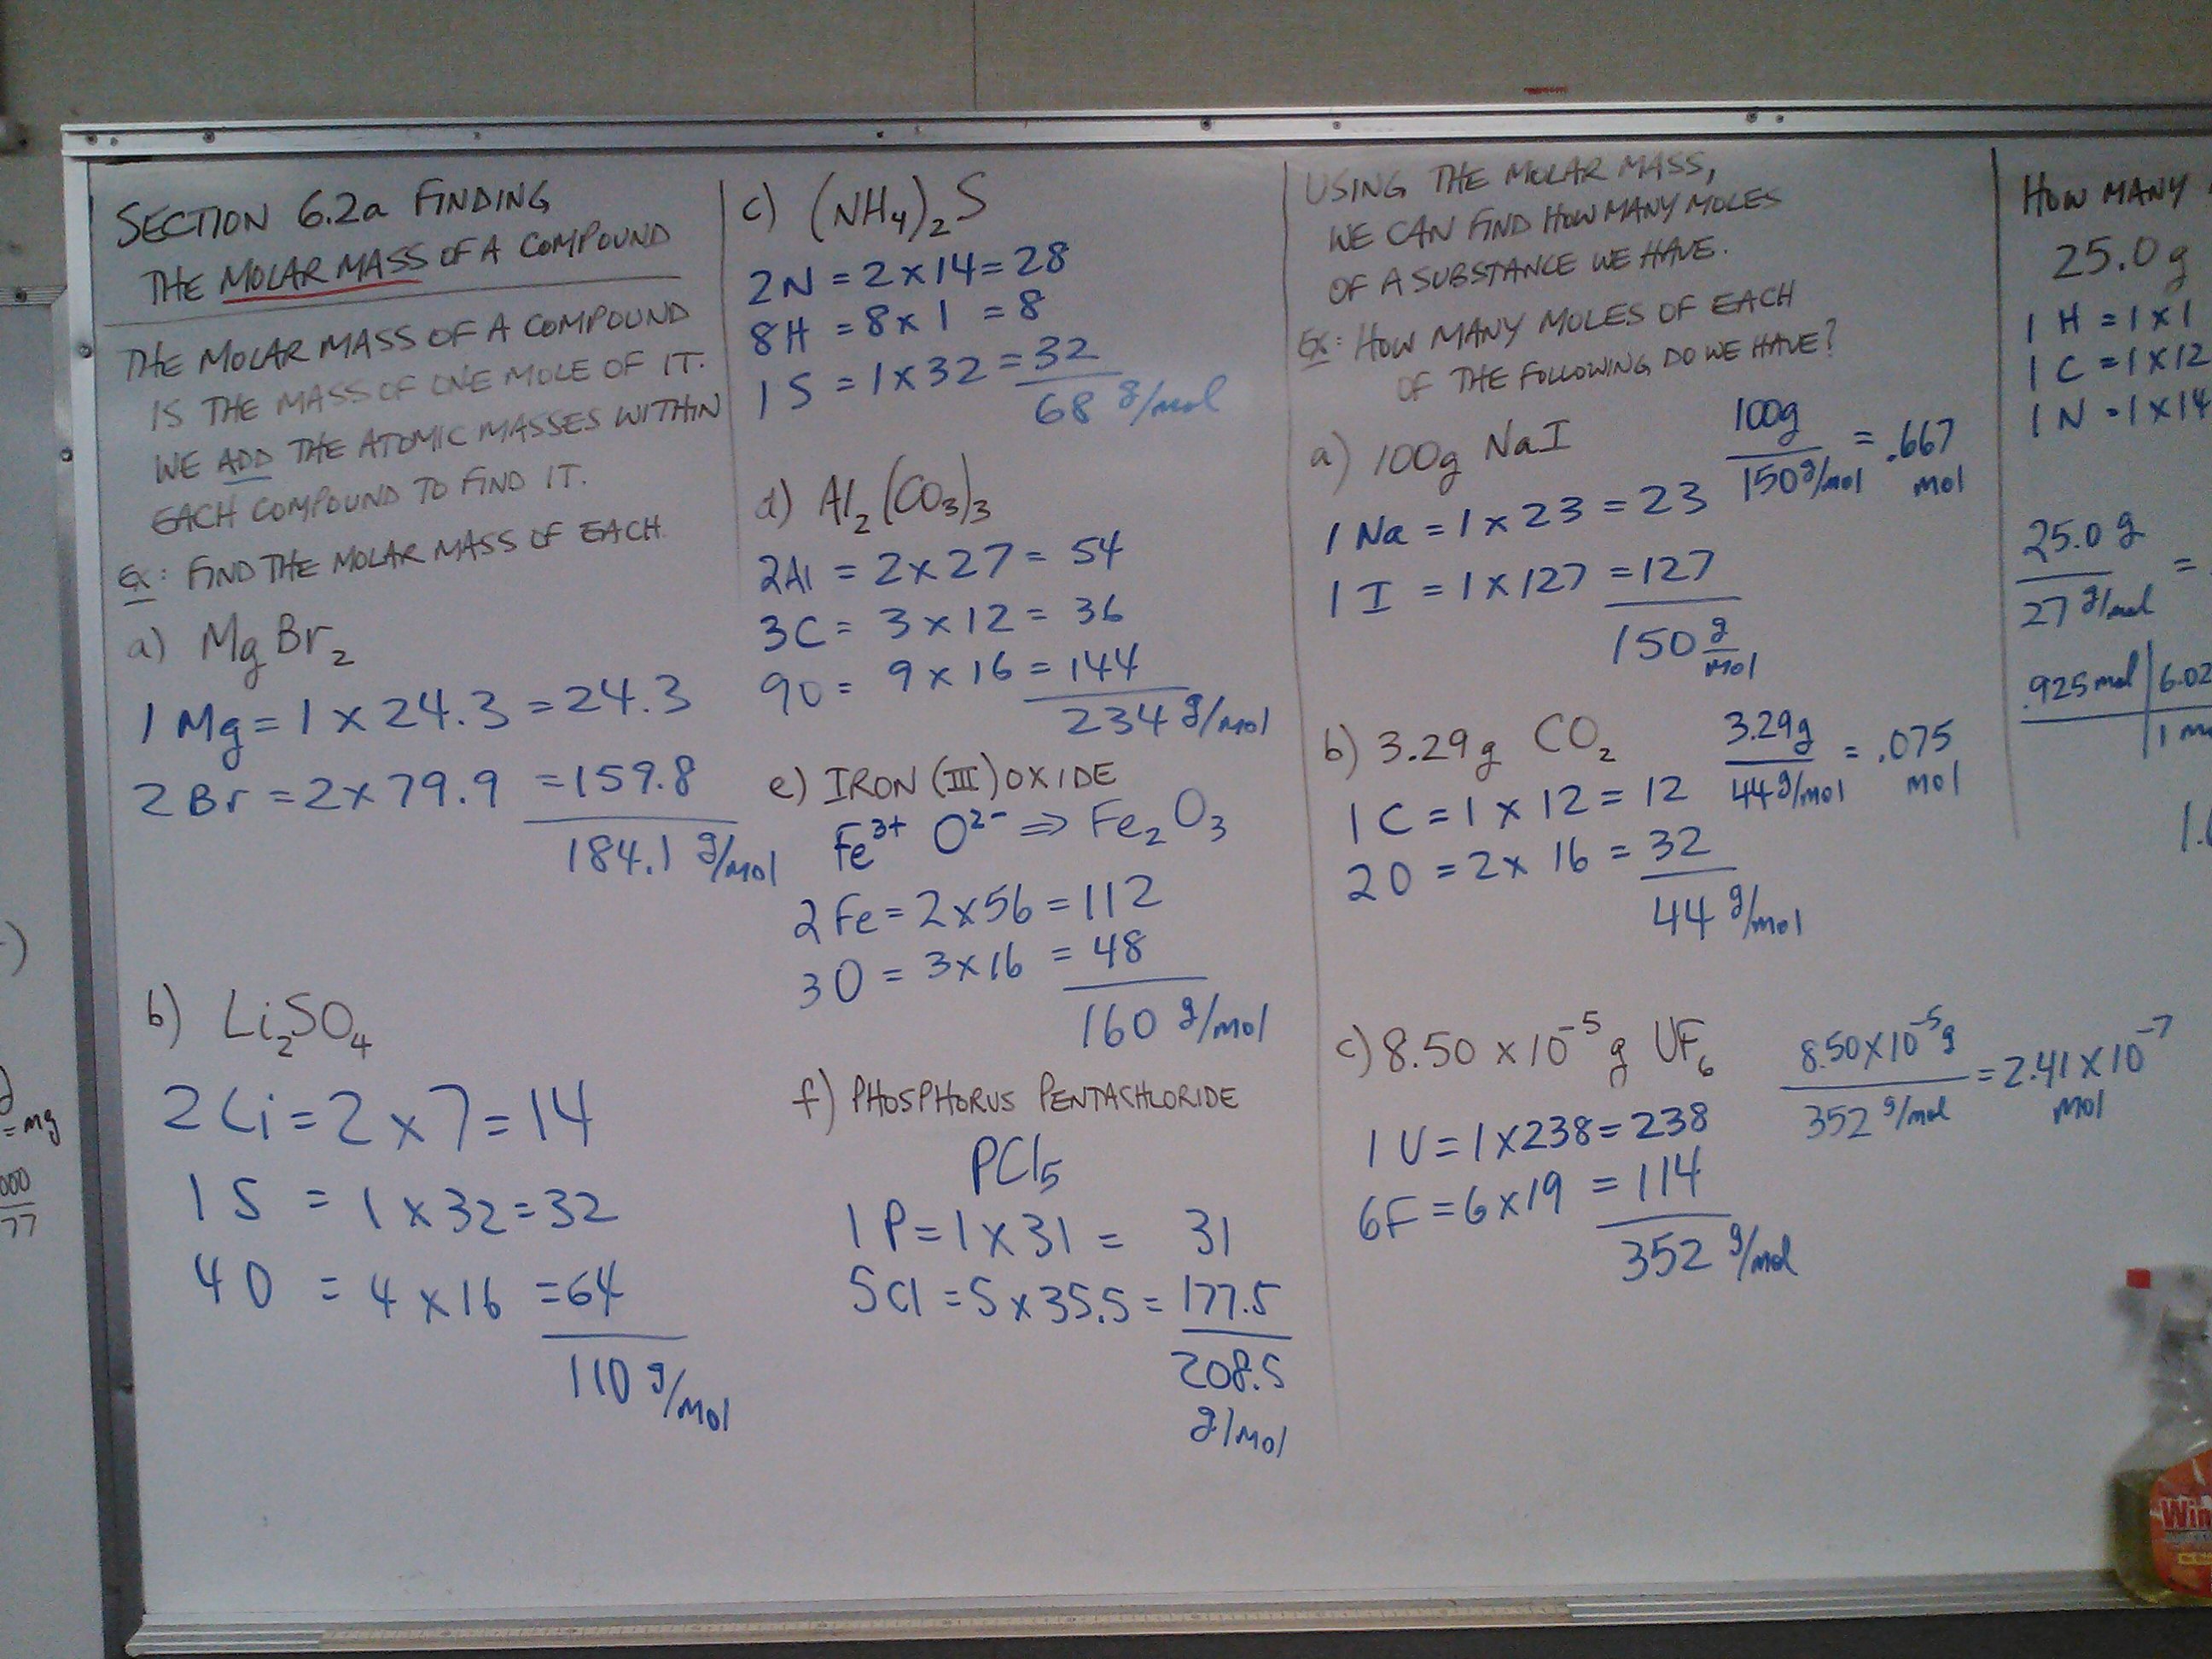 SECTION 6.2a FINDING
THE MOLAR MASS OF A COMPOUND
THE MOLAR MASS OF A COMPOUND
IS THE MASS OF ONE MOLE OF IT.
WE ADD THE ATOMIC MASSES WITHIN
EACH COMPOUND TO FIND IT.
EX: FIND THE MOLAR MASS OF EACH
a) MgBr₂
1 Mg = 1 x 24.3 = 24.3
2 Br = 2 x 79.9 = 159.8
184.1 g/mol
b) Li₂SO₄
2 Li = 2 x 7 = 14
1 S = 1 x 32 = 32
4 O = 4 x 16 = 64
110 g/mol
c) (NH₄)₂S
2 N = 2 x 14 = 28
8 H = 8 x 1 = 8
1 S = 1 x 32 = 32
68 g/mol
d) Al₂(CO₃)₃
2Al = 2 x 27 = 54
3C = 3 x 12 = 36
9O = 9 x 16 = 144
234 g/mol
e) IRON (III) OXIDE
Fe³⁺ O²⁻ ⇒ Fe₂O₃
2 Fe = 2 x 56 = 112
3 O = 3 x 16 = 48
160 g/mol
f) PHOSPHORUS PENTACHLORIDE
PCl₅
1 P = 1 x 31 = 31
5Cl = 5 x 35.5 = 177.5
208.5
g/mol
USING THE MOLAR MASS,
WE CAN FIND HOW MANY MOLES
OF A SUBSTANCE WE HAVE.
EX: HOW MANY MOLES OF EACH
OF THE FOLLOWING DO WE HAVE?
a) 100g NaI
100g / 150 g/mol = .667 mol
1 Na = 1 x 23 = 23
1 I = 1 x 127 = 127
150 g/mol
b) 3.29g CO₂
3.29g / 44 g/mol = .075 mol
1 C = 1 x 12 = 12
2 O = 2 x 16 = 32
44 g/mol
c) 8.50 x 10⁻⁵ g UF₆
8.50 x 10⁻⁵ g / 352 g/mol = 2.41 x 10⁻⁷ mol
1 U = 1 x 238 = 238
6F = 6 x 19 = 114
352 g/mol
HOW MANY
25.0 g
1 H = 1 x 1
1 C = 1 x 12
1 N = 1 x 14
25.0 g / 27 g/mol =
.925 mol | 6.02
1
= mg
000
77
Win